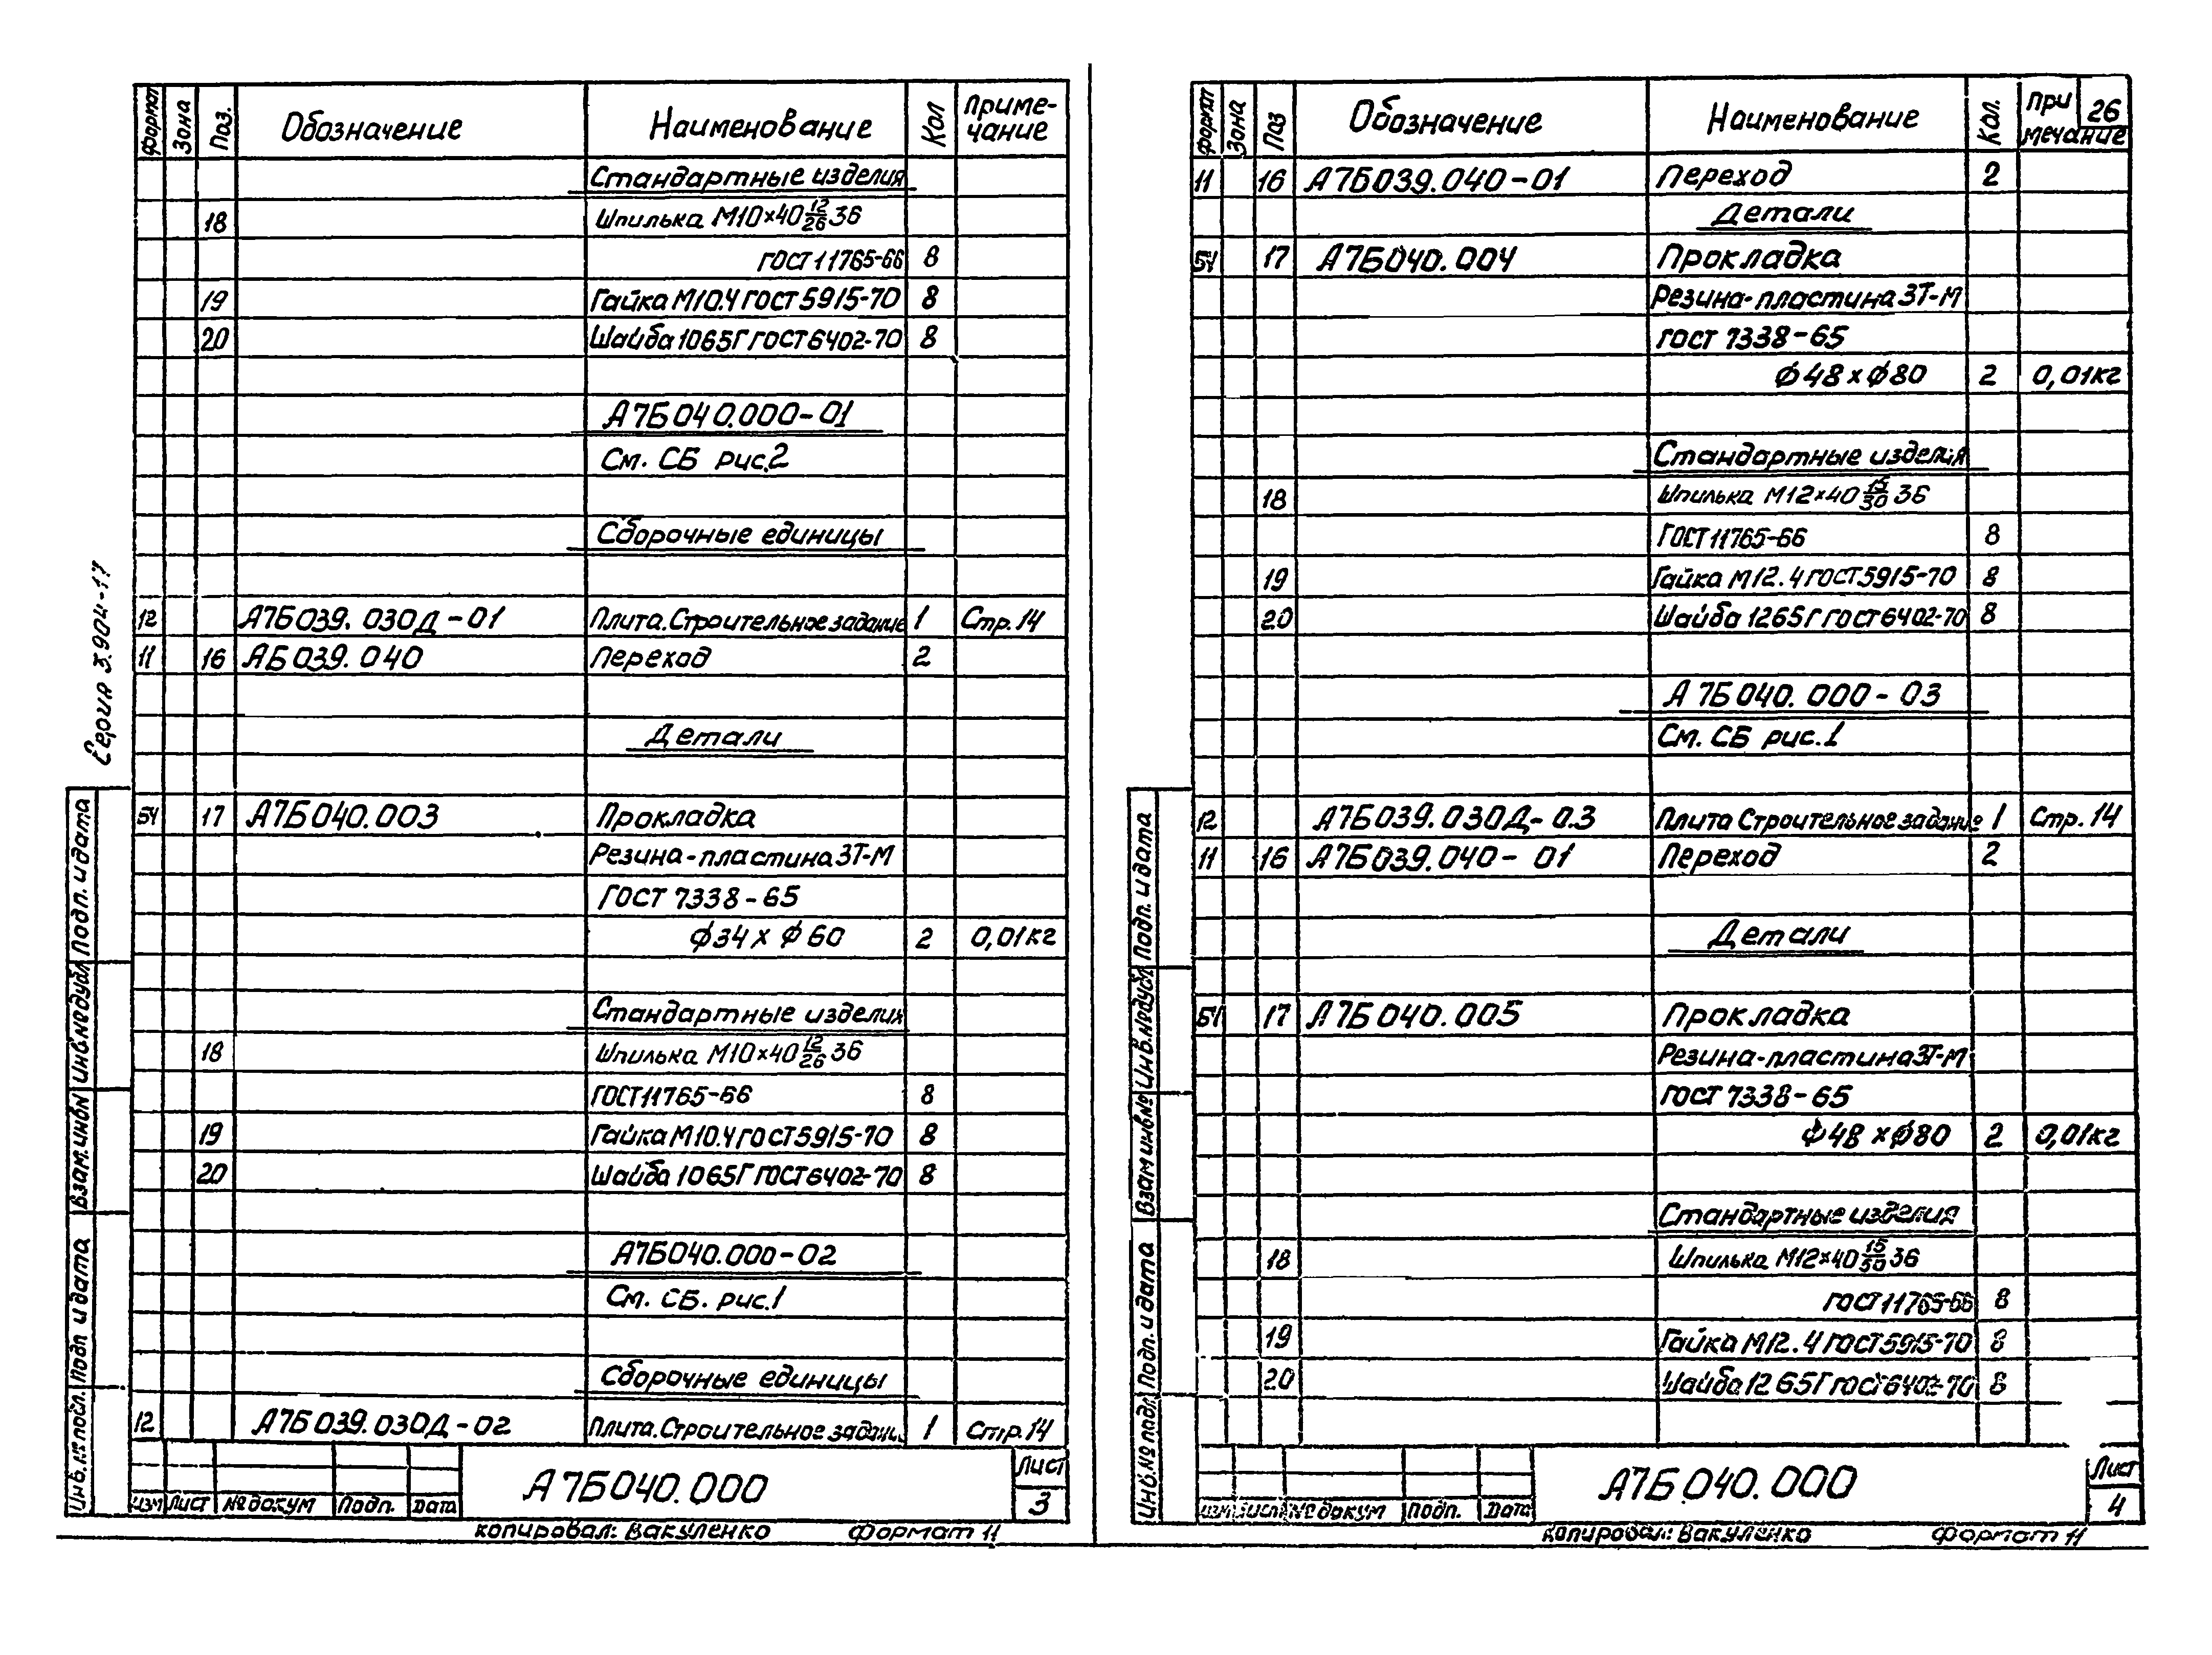 Серия 3.904-17
Формат Зона Поз. Обозначение Наименование Кол Приме-
чание
Стандартные изделия
18 Шпилька М10×40 12/26 36
ГОСТ 11765-66 8
19 Гайка М10.4 ГОСТ 5915-70 8
20 Шайба 10 65Г ГОСТ 6402-70 8
А7Б040.000-01
См. СБ рис.2
Сборочные единицы
12 А7Б039.030Д-01 Плита.Строительное задание 1 Стр.14
11 16 АБ039.040 Переход 2
Детали
БЧ 17 А7Б040.003 Прокладка
Резина-пластина 3Т-М
ГОСТ 7338-65
ϕ34×ϕ60 2 0,01кг
Стандартные изделия
18 Шпилька М10×40 12/26 36
ГОСТ 11765-66 8
19 Гайка М10.4 ГОСТ 5915-70 8
20 Шайба 10 65Г ГОСТ 6402-70 8
А7Б040.000-02
См. СБ. рис.1
Сборочные единицы
12 А7Б039.030Д-02 Плита.Строительное задани 1 Стр.14
Подп. и дата
Инв.№дубл
Взам.инв№
Подп и дата
Инв.№подл.
Изм Лист № докум Подп. Дата
А7Б040.000
Лист
3
Копировал: Вакуленко Формат 11
Формат Зона Поз Обозначение Наименование Кол. При
мечание
26
11 16 А7Б039.040-01 Переход 2
Детали
БЧ 17 А7Б040.004 Прокладка
Резина-пластина 3Т-М
ГОСТ 7338-65
ϕ48×ϕ80 2 0,01кг
Стандартные изделия
18 Шпилька М12×40 15/30 36
ГОСТ 11765-66 8
19 Гайка М12.4 ГОСТ 5915-70 8
20 Шайба 12 65Г ГОСТ 6402-70 8
А7Б040.000-03
См. СБ рис.1
12 А7Б039.030Д-03 Плита Строительное задание 1 Стр.14
11 16 А7Б039.040-01 Переход 2
Детали
БЧ 17 А7Б040.005 Прокладка
Резина-пластина 3Т-М
ГОСТ 7338-65
ϕ48×ϕ80 2 0,01кг
Стандартные изделия
18 Шпилька М12×40 15/50 36
ГОСТ 11765-66 8
19 Гайка М12.4 ГОСТ 5915-70 8
20 Шайба 12 65Г ГОСТ 6402-70 8
Подп. и дата
Инв.№дубл
Взам инв№
Подп. и дата
Инв.№ подл
Изм Лист № докум Подп. Дата
А7Б040.000
Лист
4
Копировал: Вакуленко Формат 11